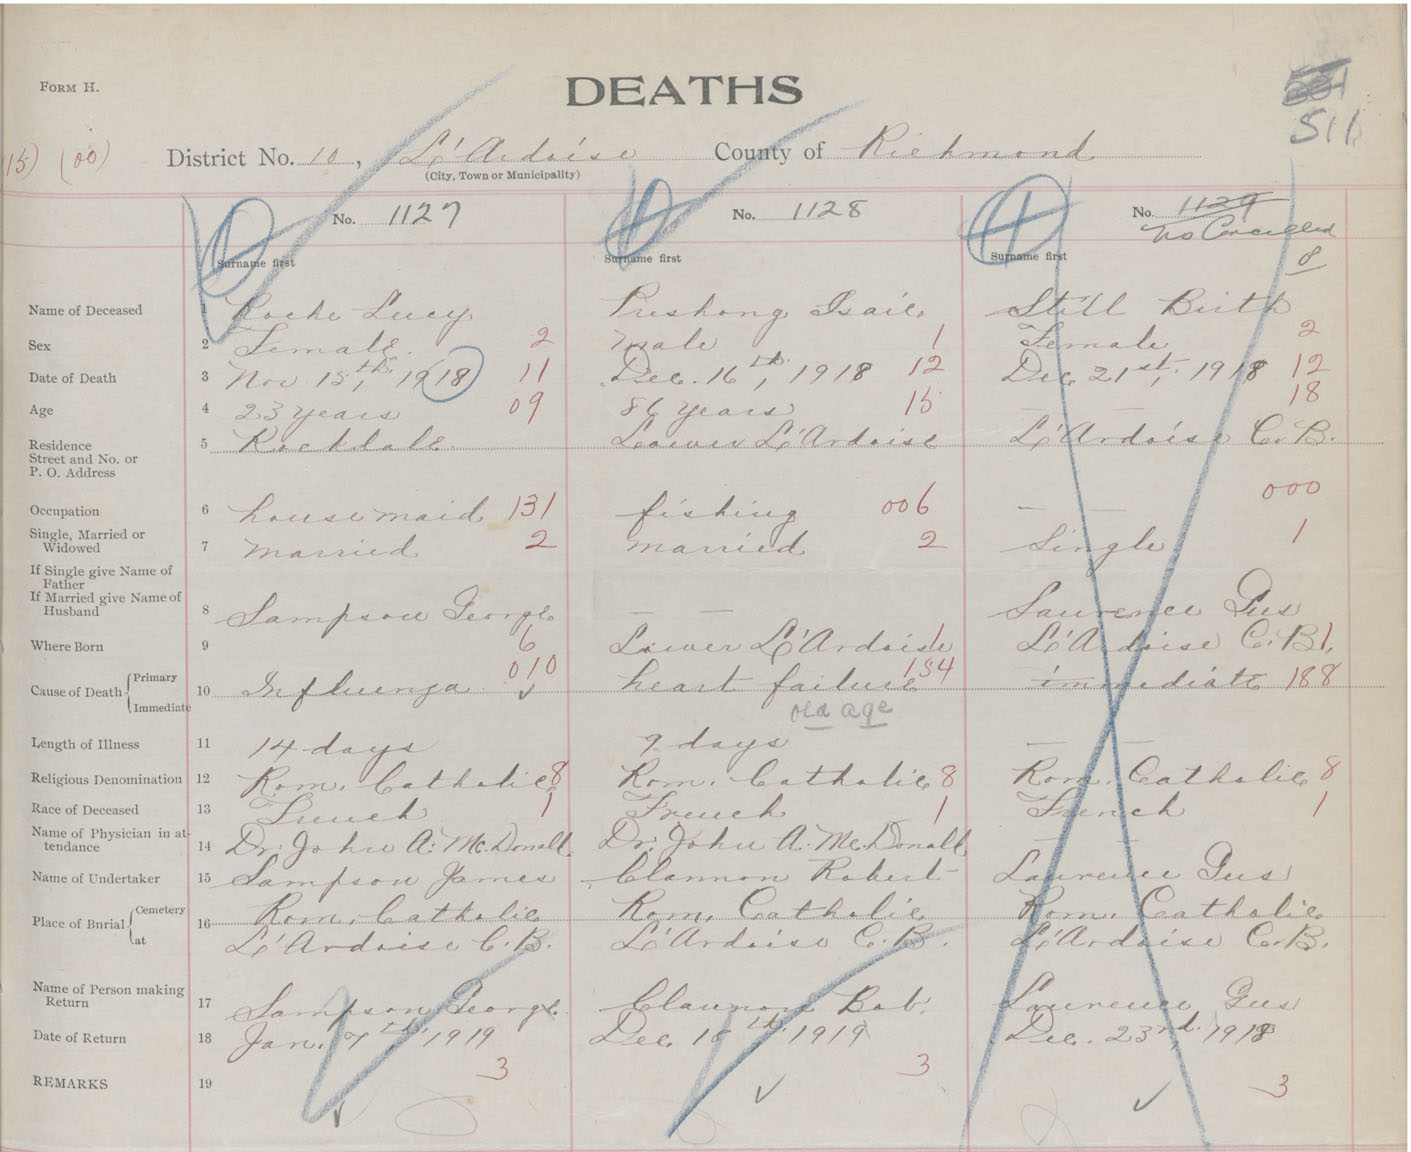 FORM H.
DEATHS
511
(15) (00) District No. 10, L'Ardoise County of Richmond
(City, Town or Municipality)
No. 1127 No. 1128 No. 1129
No Cancelled
Surname first Surname first Surname first 8
Name of Deceased 1 Roche Lucy Preshong Isaie Still Birth
Sex 2 Female 2 male 1 Female 2
Date of Death 3 Nov 15th, 1918 11 Dec. 16th, 1918 12 Dec 21st, 1918 12
Age 4 23 years 09 86 years 15 — — 18
Residence 5 Rockdale Lower L'Ardoise L'Ardoise C.B.
Street and No. or
P. O. Address
Occupation 6 housemaid 131 fishing 006 — — 000
Single, Married or
Widowed 7 married 2 married 2 Single 1
If Single give Name of
Father
If Married give Name of
Husband 8 Sampson George — — Laurence Gus
Where Born 9 6 Lower L'Ardoise 1 L'Ardoise C.B. 1
Cause of Death Primary 010 154
10 Influenza heart failure immediate 188
Immediate old age
Length of Illness 11 14 days 9 days — —
Religious Denomination 12 Rom. Catholic 8 Rom. Catholic 8 Rom. Catholic 8
Race of Deceased 13 French 1 French 1 French 1
Name of Physician in at-
tendance 14 Dr. John A. McDonald Dr. John A. McDonald — —
Name of Undertaker 15 Sampson James Clannon Robert Laurence Gus
Place of Burial Cemetery 16 Rom. Catholic Rom. Catholic Rom. Catholic
at L'Ardoise C.B. L'Ardoise C.B. L'Ardoise C.B.
Name of Person making
Return 17 Sampson George Clannon Bob. Laurence Gus
Date of Return 18 Jan. 7th, 1919 Dec. 18th, 1919 Dec. 23rd, 1918
REMARKS 19 3 3 3